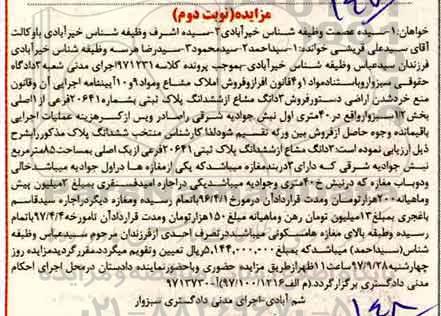 مزایده(نوبت دوم)
خواهان:۱-سیده عصمت وظیفه شناس خیرآبادی۲-سیده اشرف وظیفه شناس خیرآبادی باوکالت
آقای سیدعلی قریشی خوانده:۱-سیداحمد۲-سیدمحمود۳-سیدرضا هرسه وظیفه شناس خیرآبادی
فرزندان سیدعباس وظیفه شناس خیرآبادی -بموجب پرونده کلاسه ۹۷۱۲۳۱اجرای مدنی شعبه ۳دادگاه
حقوقی سبزوارباستنادمواد۱و۴قانون افرازوفروش املاک مشاع ومواد۹و۱۰آیین‌نامه اجرایی آن وقانون
منع خردشدن اراضی دستورفروش ۳دانگ مشاع ازششدانگ پلاک ثبتی بشماره۲۰۶۴۱فرعی از۱اصلی
بخش ۱۲سبزوارواقع در۴۰متری اول نبش جوادیه شرقی راصادر وپس از کسرهزینه عملیات اجرایی
باقیمانده وجوه حاصل ازفروش بین ورثه تقسیم شودلذا کارشناس منتخب ششدانگ پلاک مذکوررابشرح
ذیل ارزیابی نموده است:۳دانگ مشاع ازششدانگ پلاک ثبتی ۲۰۶۴۱فرعی ازیک اصلی بمساحت۸۵مترمربع
نبش جوادیه شرقی که دارای ۳دربندمغازه میباشدکه یکی ازمغازه ها دراول جوادیه میباشدخالی
ودوباب مغازه که درنبش خ۴۰متری وجوادیه میباشدیکی دراجاره امیدفسنقری بمبلغ ۲میلیون پیش
وماهیانه ۲۰۰هزارتومان ومدت قراردادآن درمورخ ۹۶/۴/۱باتمام رسیده ومغازه دیگردراجاره سیدقاسم
باغجری بمبلغ ۱۳میلیون تومان رهن وماهیانه مبلغ ۱۵۰هزارتومان ومدت قراردادآن تامورخه۹۷/۴/۴باتمام
رسیده وطبقه بالای مغازه هامسکونی میباشددرتصرف احدی ازفرزندان مرحوم سیدعباس وظیفه
شناس(سیداحمد) میباشدکه بمبلغ۵,۱۴۴,۰۰۰,۰۰۰ریال تعیین وتقویم میگرددمقررگردیدمزایده روز
چهارشنبه۹۷/۹/۲۸ساعت۱۱ظهرازطریق مزایده حضوری وباحضورنماینده دادستان درمحل اجرای احکام
دادگستری برگزارگردد.(م الف۹۷/۱۰۰/۱۲۱۶) ۹۷۱۳۷۳۰
شم آبادی-اجرای مدنی دادگستری سبزوار